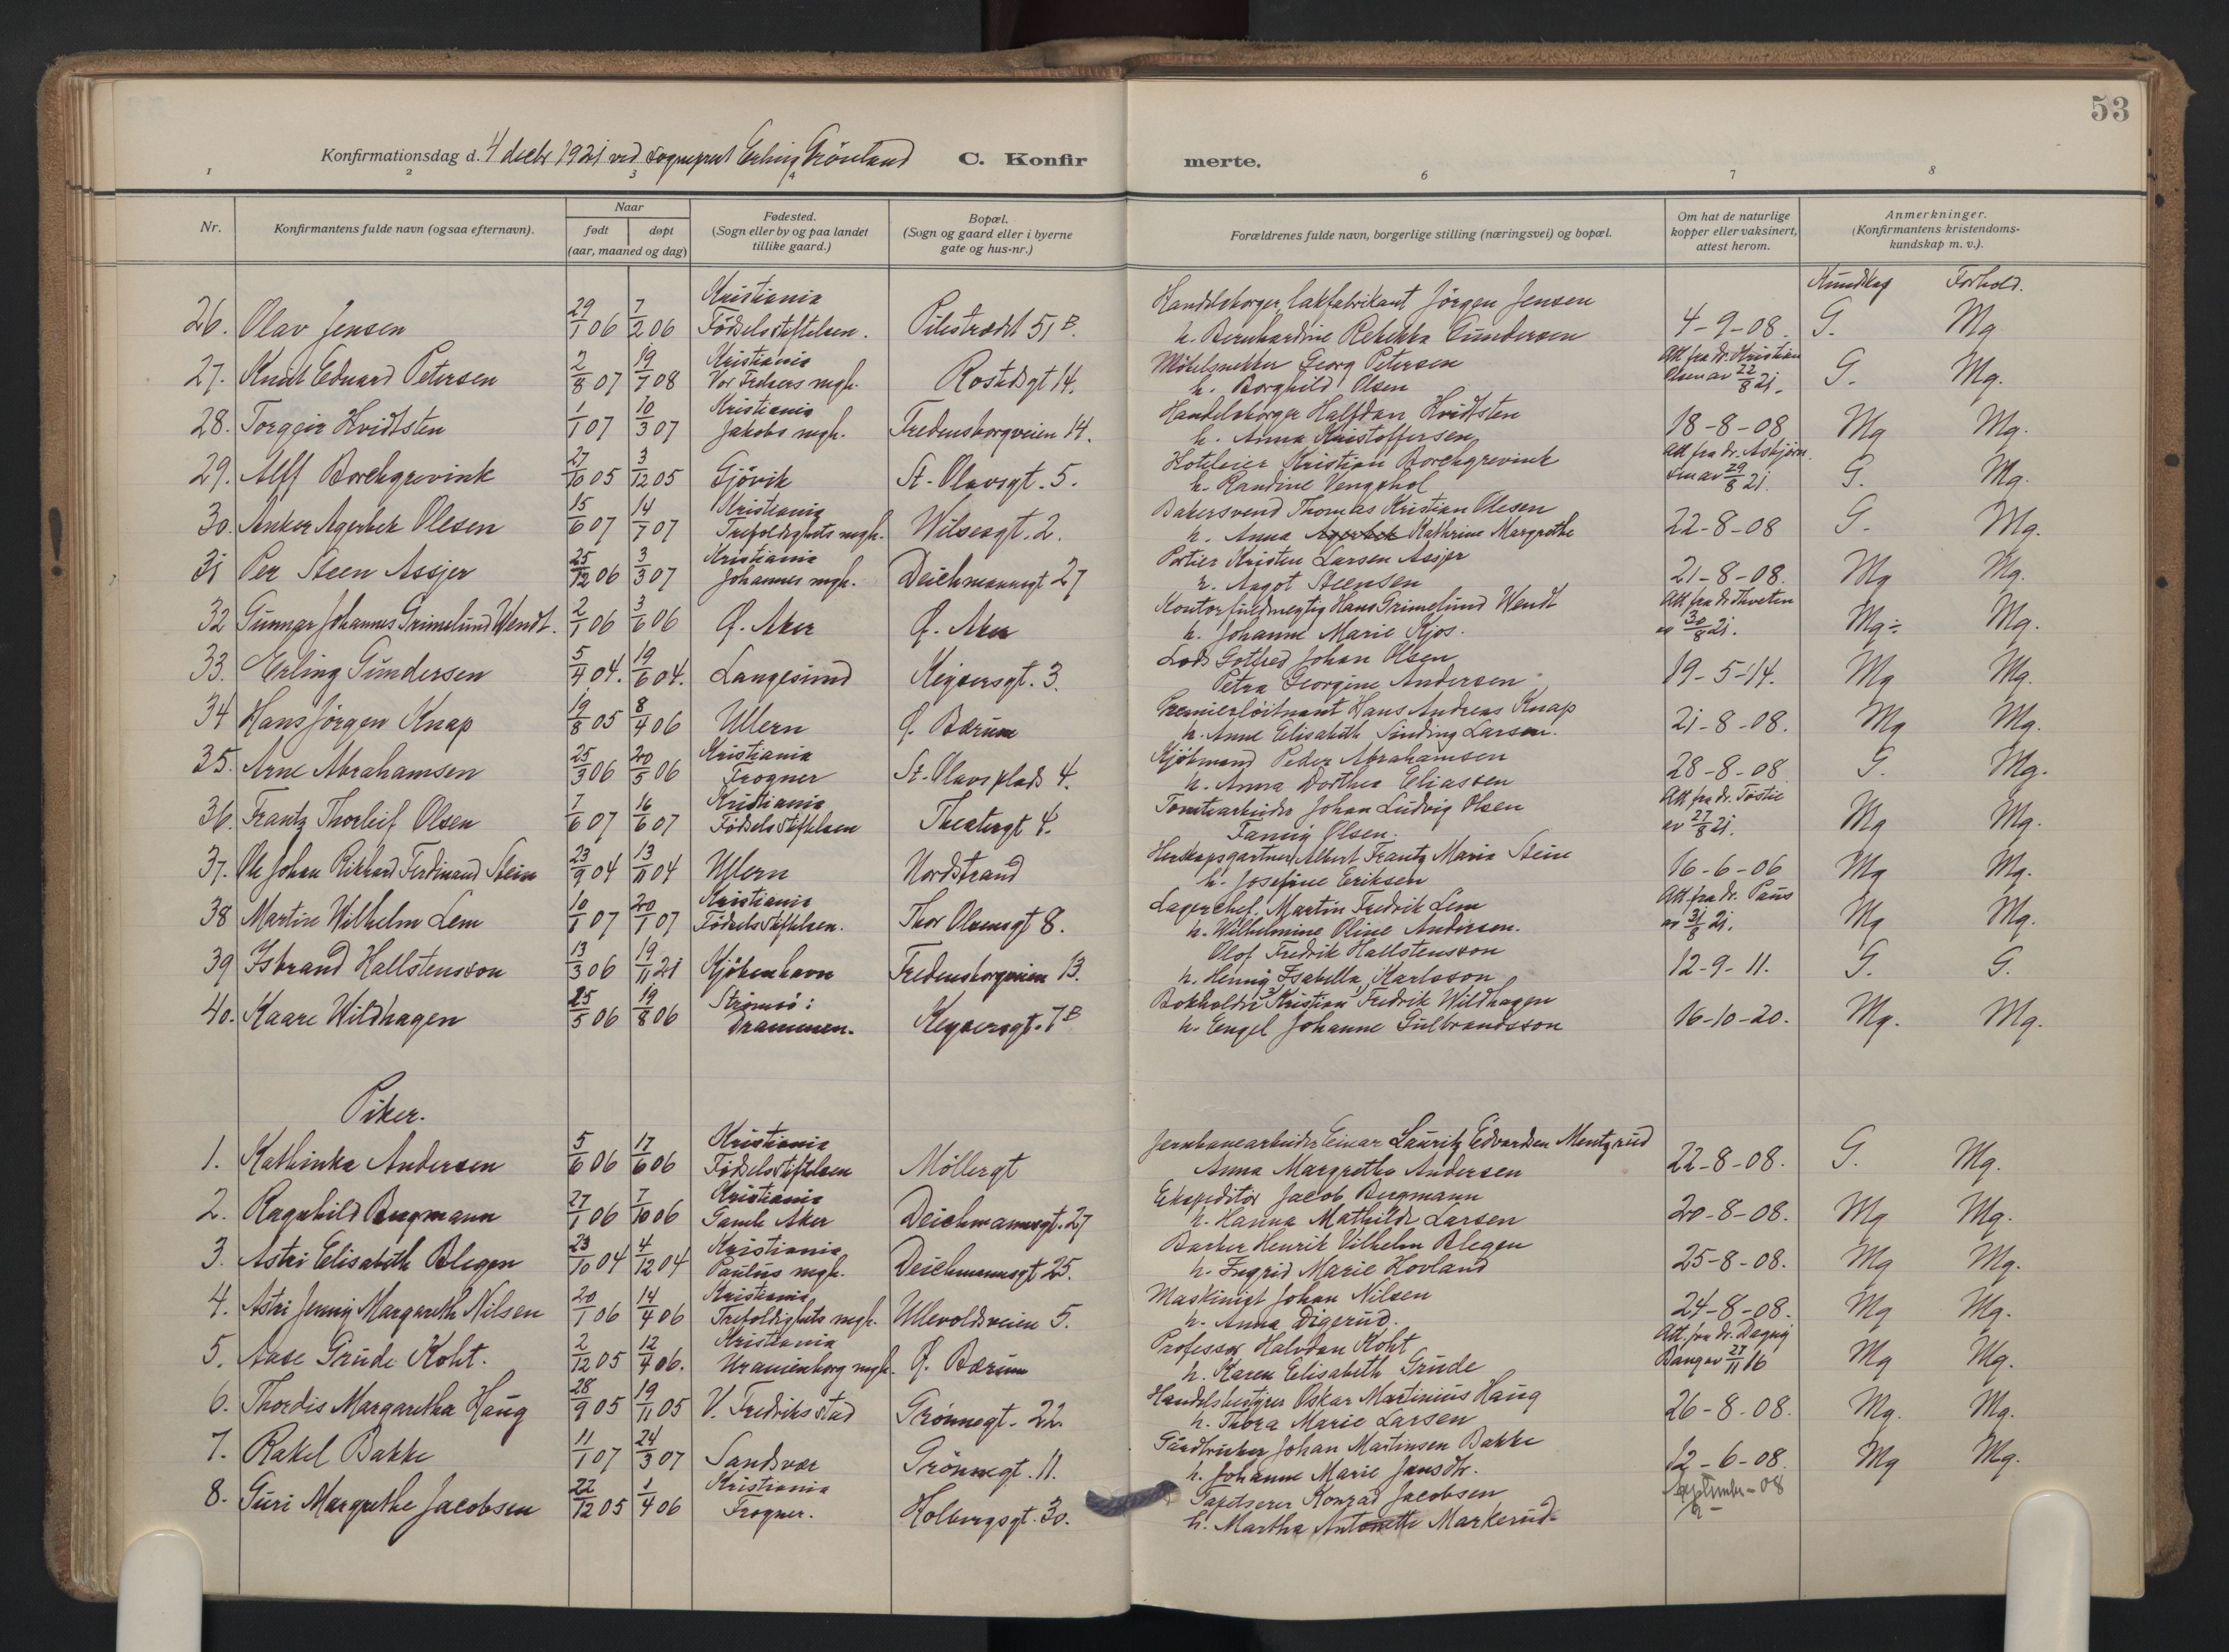 53
Konfirmationsdag d. 4 decbr 1921 ved sogneprest Erling Grönland C. Konfirmerte.
1 2 3 4 6 7 8
Nr. Konfirmantens fulde navn (ogsaa efternavn). Naar født døpt (aar, maaned og dag) Fødested. (Sogn eller by og paa landet tillike gaard.) Bopæl. (Sogn og gaard eller i byerne gate og hus-nr.) Forældrenes fulde navn, borgerlige stilling (næringsvei) og bopæl. Om hat de naturlige kopper eller vaksinert, attest herom. Anmerkninger. (Konfirmantens kristendomskundskap m. v.).
Kundskap Forhold.
26. Olav Jensen 29/1 06 7/2 06 Kristiania Födselsstiftelsen. Pilestrædt 51 B. Handelsborger, lakfabrikant Jörgen Jensen h. Bernhardine Rebekka Gundersen 4-9-08. G. Mg
27. Knut Eduard Petersen 2/8 07 19/7 08 Kristiania Vor Frelsers mgh. Rostedsgt 14. Möbelsnekker Georg Petersen h. Borghild Olsen Att. fra dr. Kristian Olsen av 22/8 21. G. Mg.
28. Torgeir Hvidtsten 1/1 07 10/3 07 Kristiania Jakobs mgh. Fredensborgveien 14. Handelsborger Halfdan Hvidtsten h. Anna Kristoffersen 18-8-08 Mg Mg.
29. Alff Borchgrevink 27/10 05 3/12 05 Gjövik St. Olavsgt. 5. Hoteleier Kristian Borchgrevink h. Randine Vengshol Att. fra dr. Asbjørn av 29/8 21. G. Mg.
30. Anker Agerbek Olesen 15/6 07 14/7 07 Kristiania Trefoldighets mgh. Wilsesgt. 2. Bakersvend Thomas Kristian Olesen h. Anna Agerbek Kathrine Margrethe 22-8-08 G. Mg.
31 Per Steen Assjer 25/12 06 3/3 07 Kristiania Johannes mgh. Deichmannsgt 27 Portier Kristen Larsen Assjer h. Aagot Steensen 21-8-08. Mg Mg.
32 Gunnar Johannes Grimelund Wendt. 2/1 06 3/6 06 Ø. Aker Ø. Aker Kontorfuldmegtig Hans Grimelund Wendt h. Johanne Marie Kjos. Att. fra dr. Thveten av 30/8 21. Mg÷ Mg.
33. Erling Gundersen 5/4 04. 19/6 04. Langesund Keysersgt. 3. Lods Gotfred Johan Olsen Petra Georgine Andersen 19-5-14. Mg Mg.
34 Hans Jörgen Knap 19/8 05 8/4 06 Ullern Ø. Bærum Premierlöitnant Hans Andreas Knap h. Anne Elisabeth Sinding Larsen. 21-8-08. Mg Mg.
35. Arne Abrahamsen 25/3 06 20/5 06 Kristiania Frogner St. Olavs plads 4. Kjöbmand Peder Abrahamsen h. Anna Dorthea Eliassen 28-8-08 G. Mg.
36. Frantz Thorleif Olsen 7/6 07 16/6 07 Kristiania Födselsstiftelsen Theatergt 4. Tomtearbeider Johan Ludvig Olsen Fanny Olsen. Att. fra dr. Tostie av 27/8 21. Mg Mg.
37. Ole Johan Rikhard Ferdinand Stein 23/9 04 13/11 04 Ullern Nordstrand Herskapsgartner Albert Frantz Maria Stein h. Josefine Eriksen 16-6-06 Mg Mg.
38 Martin Wilhelm Lem 10/1 07 20/1 07 Kristiania Födselsstiftelsen. Thor Olsensgt 8. Lagerchef. Martin Fredrik Lem h. Wilhelmine Oline Andersen. Att. fra dr. Paus av 31/8 21. Mg Mg.
39 Isbrand Hallstensson 13/3 06 19/11 21 Kjöbenhavn Fredensborgveien 13. Olof Fredrik Hallstensson h. Henny Isabella Karlsson 12-9-11. G. G.
40. Kaare Wildhagen 25/5 06 19/8 06 Strømsö: Drammen. Keysersgt. 7 B Bokholder Kristian Fredrik Wildhagen h. Engel Johanne Gulbrandsson 16-10-20. Mg. Mg.
Piker.
1. Kathinka Andersen 5/6 06 17/6 06 Kristiania Födselsstiftelsen Möllergt Jernbanearbeider Einar Lauritz Edvardsen Mentzrud Anna Margrethe Andersen 22-8-08. G. Mg.
2. Ragnhild Bergmann 27/1 06 7/10 06 Kristiania Gamle Aker Deichmannsgt. 27 Ekspeditör Jacob Bergmann h. Hanna Mathilde Larsen 20-8-08. Mg Mg.
3. Astri Elisabeth Blegen 23/10 04 4/12 04 Kristiania Paulus mgh. Deichmannsgt 25. Barber Henrik Vilhelm Blegen h. Ingrid Marie Hovland 25-8-08. Mg Mg.
4. Astri Jenny Margareth Nilsen 20/1 06 14/4 06 Kristiania Trefoldighets mgh. Ullevoldsveien 5. Maskinist Johan Nilsen h. Anna Digerud. 24-8-08. Mg Mg.
5. Aase Grude Koht. 2/12 05 12/4 06. Kristiania Uranienborg mgh. Ø. Bærum Professor Halvdan Koht h. Karen Elisabeth Grude Att. fra dr. Dagny Bang av 27/11 16 Mg Mg.
6. Thordis Margaretha Haug 28/9 05 19/11 05 V. Fredriksstad Grönnegt. 22. Handelsbestyrer Oskar Martinius Haug h. Thora Marie Larsen 26-8-08. Mg. Mg.
7. Rakel Bakke 11/1 07 24/3 07 Sandsvær Grönnegt. 11. Gaardbruker Johan Martinsen Bakke h. Johanne Marie Jansdtr. 12-6-08. Mg Mg.
8. Guri Margrethe Jacobsen 22/12 05 1/4 06 Kristiania Frogner. Holbergsgt. 30. Tapetserer Konrad Jacobsen h. Martha Antonette Markerud September-08